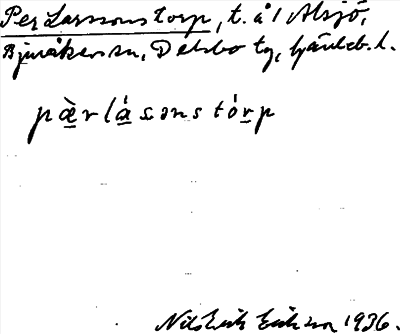 Per Larssons torp, t. å 1 Alsjö,
Bjuråkers sn, Delsbo tg, Gävleb. l.
pæ̀rlásɔnstórp
Nils Erik Eriksson 1936.